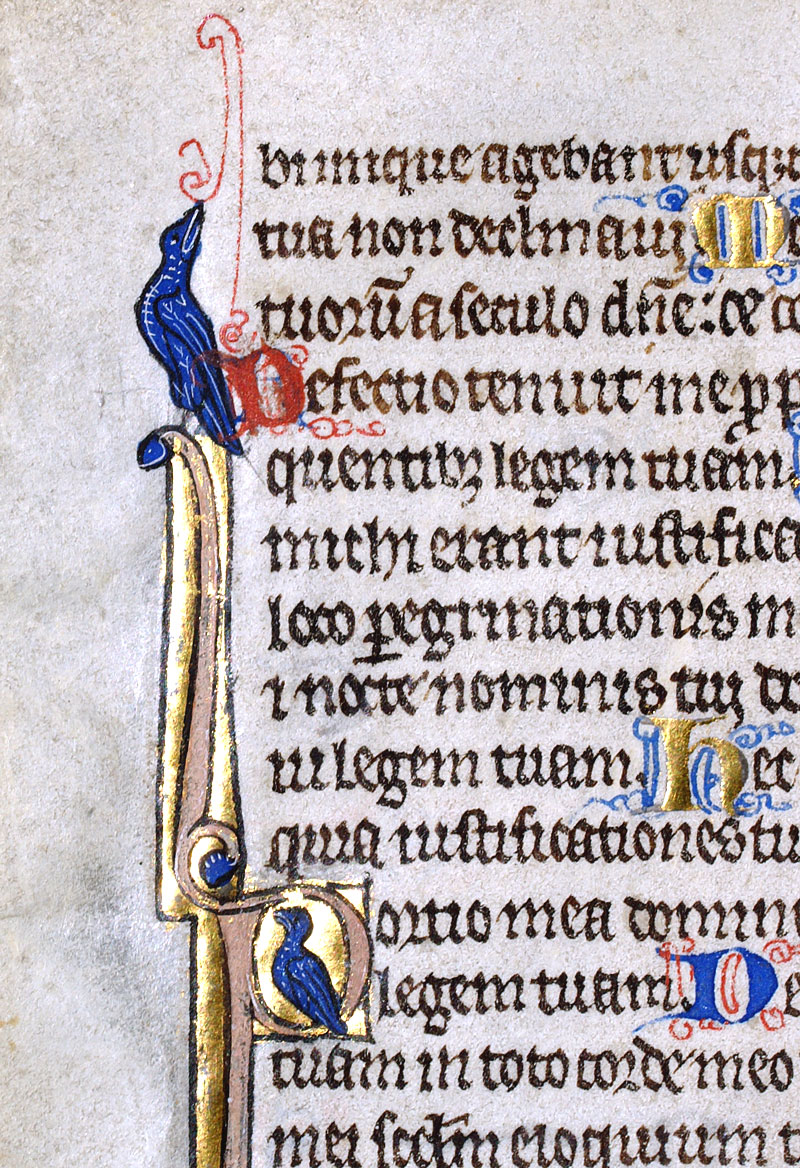 bi inique agebant usq;
tua non declinauij. M
tuorū a seculo dñe: ⁊ co
Defectio tenuit me p p
quentibꝫ legem tuam.
michi erant iustifica
loco ꝑegrinationis m
i nocte nominis tuij do
ui legem tuam. Hec
quia iustificationes tu
Portio mea domin
legem tuam. De
tuam in toto corde meo
mei scdm̄ eloquium t